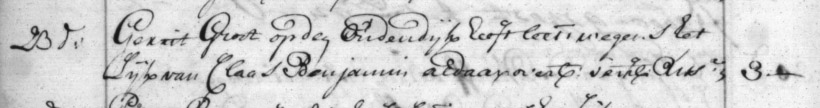 23 d:o Gerrit Groot op den Oudendijk heeft laeten wegens het
Lijk van Claas Benjamin aldaar overl: 3 —